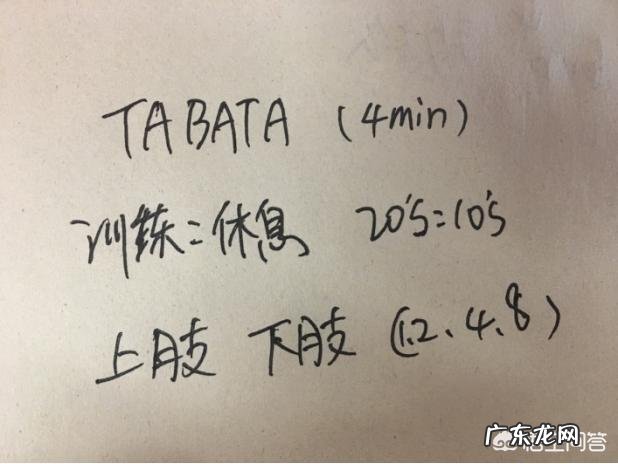 TABATA (4min)
训练:休息 20's:10's
上肢 下肢 (1.2、4、8)
悟空问答
广东龙网